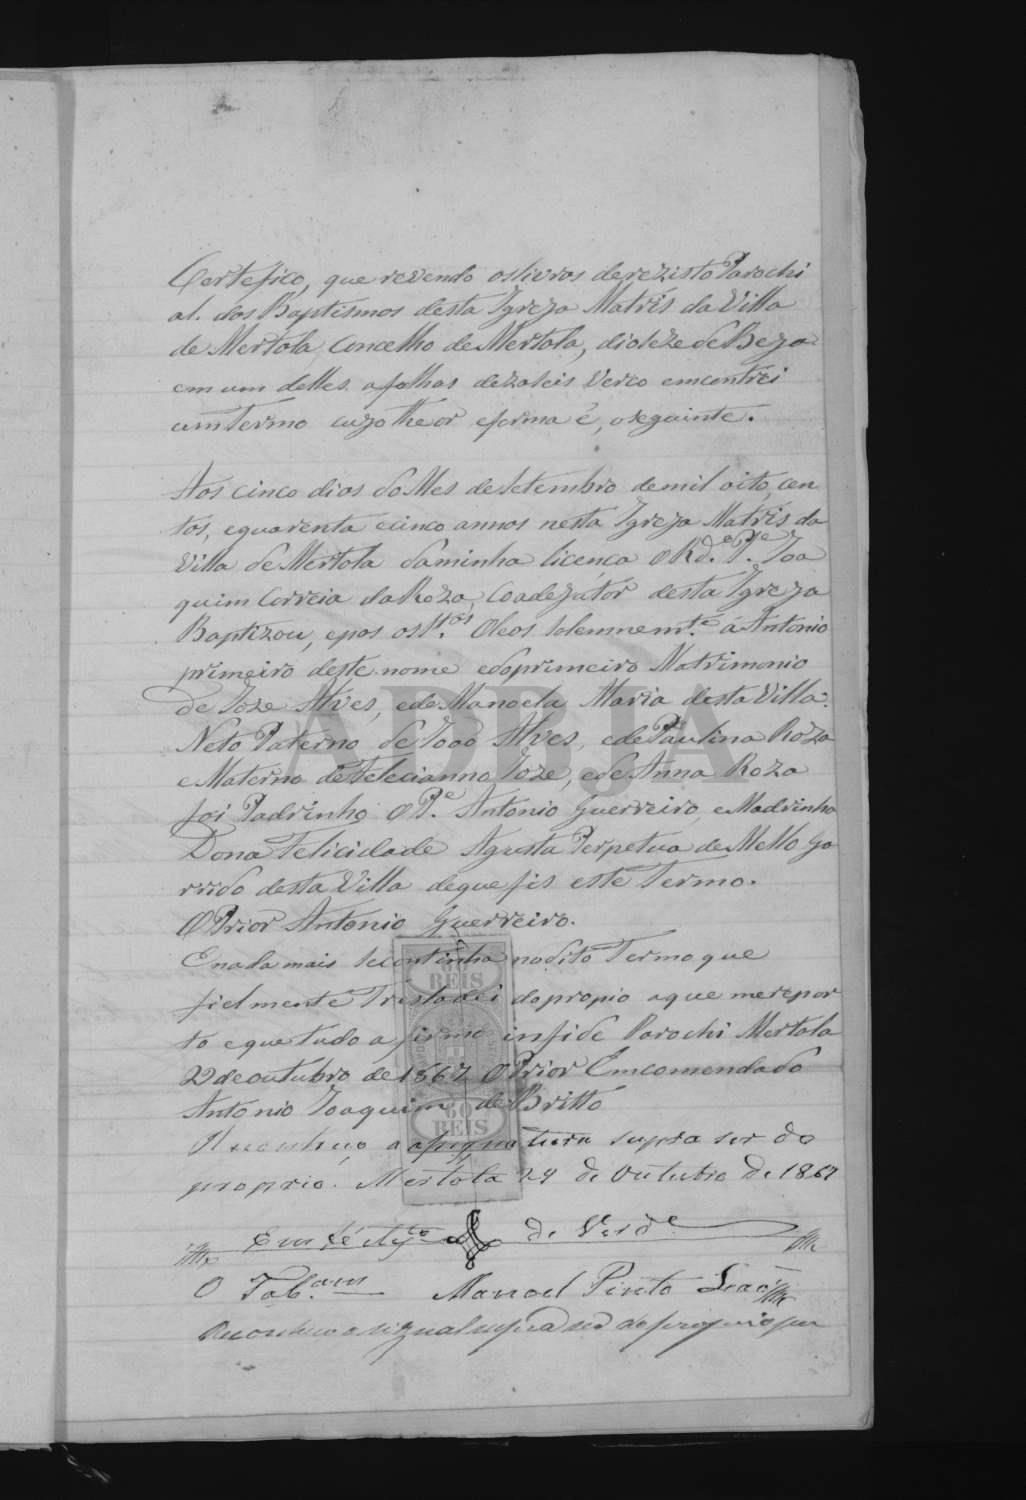 Certefico, que revendo os livros de rezisto Parochi
al. dos Baptismos desta Igreja Matris da Villa
de Mertola Concelho de Mertola, dioleze de Beja
em um delles a folhas dezaseis Verco emcontrei
um termo cujo theor e forma é, o seguinte.
Aos cinco dias do Mes de Setembro de mil oito, cen
tos, e quarenta e cinco annos nesta Igreja Matris da
Villa de Mertola da minha licença o Rd.º P.e Joa
quim Correia da Roza, Coadejutor desta Igreja
Baptizou, e pos os S.tos Oleos Solemnem.te á Antonio
primeiro deste nome e do primeiro Matrimonio
de Joze Alves, e de Manoela Maria desta Villa.
Neto Paterno de Joao Alves, e de Paulina Roza
e Materno de Felecianno Joze, e de Anna Roza
foi Padrinho, o P.e Antonio Guerreiro, e Madrinha
Dona Felicidade Agusta Perpetua de Mello Ga
rrido desta Villa de que fis este Termo.
O Prior Antonio Guerreiro.
E nada mais se continha no dito Termo que
fielmente Tresladei do propio a que me repor
to e que tudo a firmo in fide Parochi Mertola
22 de outubro de 1867 O Prior Emcomendado
Antonio Joaquim de Britto
Reconheço a assignatura supra ser do
proprio. Mertola 24 de Outubro de 1867
Em fé de Verd.e
O Tab.am Manoel Pinto Leaõ
Reconheco o signal supra ser do proprio
60
REIS
60
REIS
ADBJA